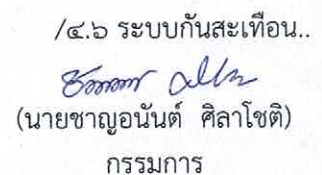 /๔.๖ ระบบกันสะเทือน..
(นายชาญอนันต์ ศิลาโชติ)
กรรมการ